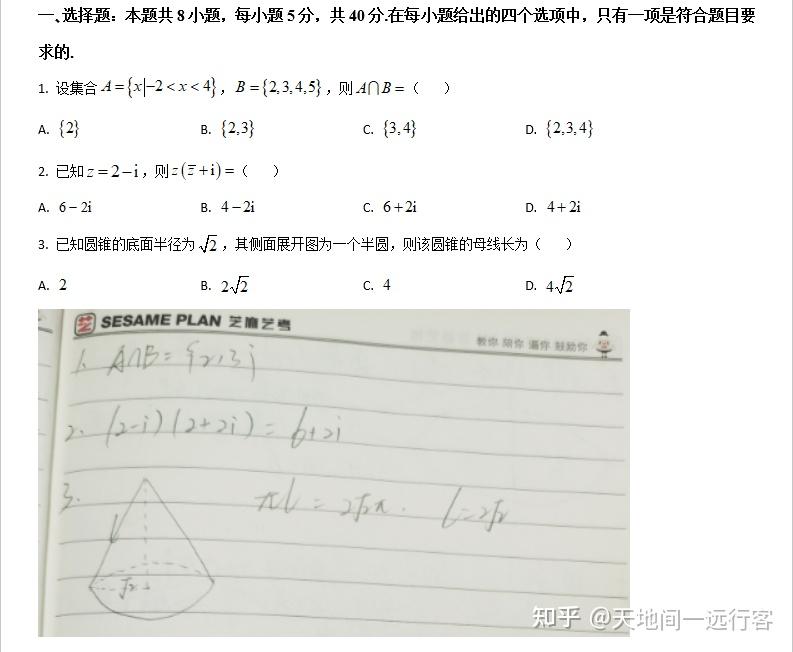 一、选择题：本题共 8 小题，每小题 5 分，共 40 分.在每小题给出的四个选项中，只有一项是符合题目要
求的.
1. 设集合 A={x|-2<x<4}，B={2,3,4,5}，则 A∩B=（ ）
A. {2} B. {2,3} C. {3,4} D. {2,3,4}
2. 已知 z=2-i，则 z(z̅+i)=（ ）
A. 6-2i B. 4-2i C. 6+2i D. 4+2i
3. 已知圆锥的底面半径为 √2，其侧面展开图为一个半圆，则该圆锥的母线长为（ ）
A. 2 B. 2√2 C. 4 D. 4√2
芝 SESAME PLAN 芝麻艺考
教你 陪你 逼你 鼓励你
1. A∩B={2,3}
2. (2-i)(2+2i)=6+2i
3. πl=2√2π. l=2√2
l
√2
知乎 @天地间一远行客